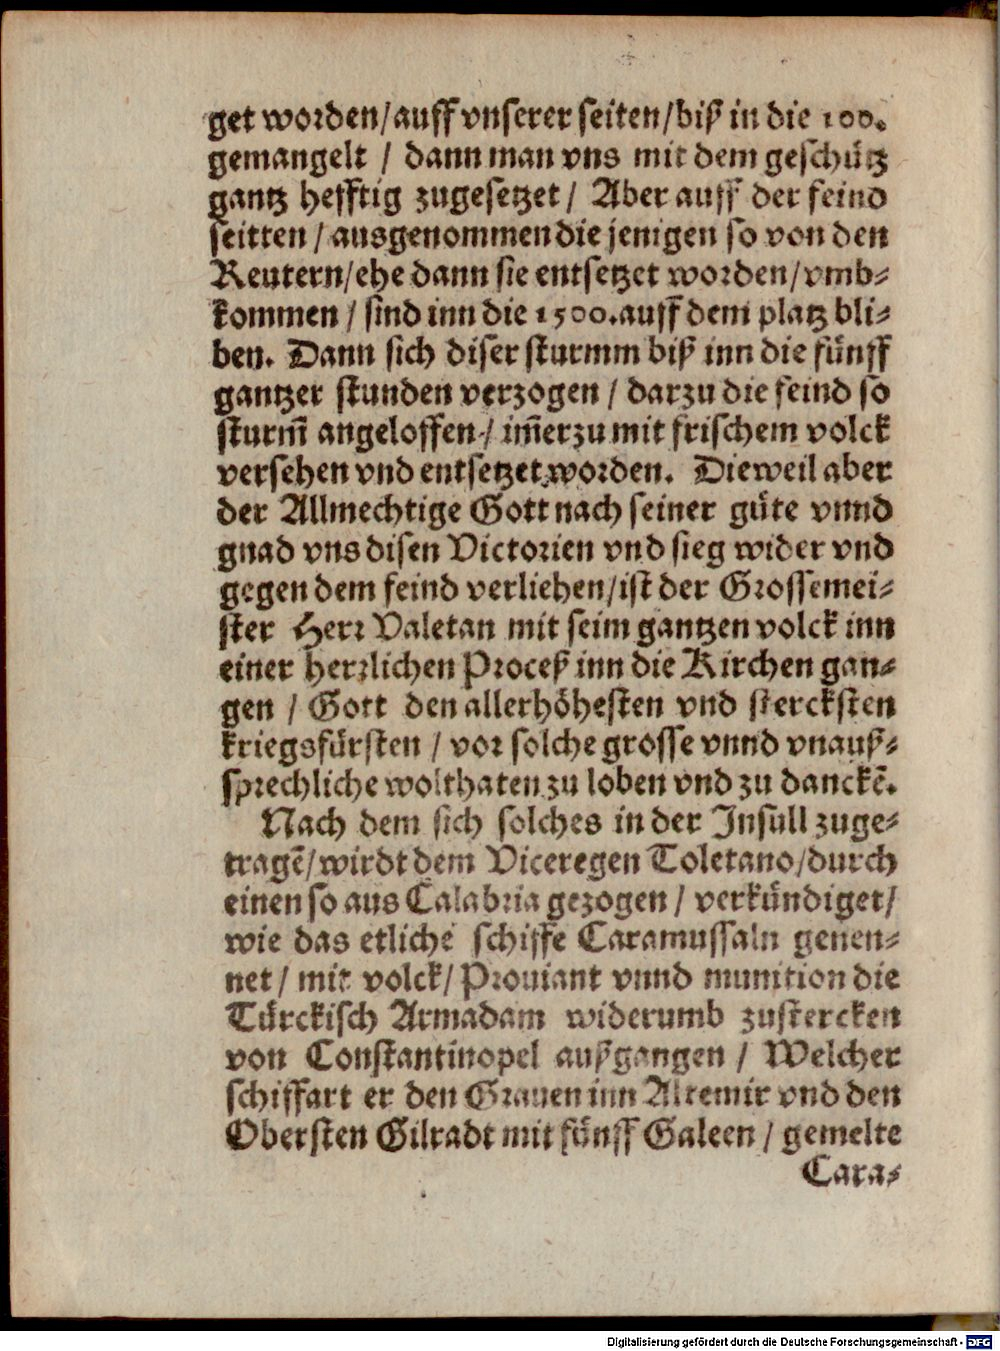 get worden/auff vnserer seiten/biß in die 100.
gemangelt / dann man vns mit dem geschütz
gantz hefftig zugesetzet / Aber auff der feind
seitten / ausgenommen die jenigen so von den
Reutern/ehe dann sie entsetzet worden/vmb-
kommen / sind inn die 1500.auff dem platz bli-
ben. Dann sich diser sturmm biß inn die fünff
gantzer stunden verzogen / darzu die feind so
sturm̃ angeloffen / im̃erzu mit frischem volck
versehen vnd entsetzet worden. Dieweil aber
der Allmechtige Gott nach seiner güte vnnd
gnad vns disen Victorien vnd sieg wider vnd
gegen dem feind verliehen/ist der Grossemei-
ster Herr Valetan mit seim gantzen volck inn
einer herrlichen Proceß inn die Kirchen gan-
gen / Gott den allerhöhesten vnd stercksten
kriegsfürsten / vor solche grosse vnnd vnauß-
sprechliche wolthaten zu loben vnd zu danckẽ.
Nach dem sich solches in der Insull zuge-
tragẽ/wirdt dem Viceregen Toletano/durch
einen so aus Calabria gezogen / verkündiget/
wie das etliche schiffe Caramussaln genen-
net / mit volck/ Prouiant vnnd munition die
Türckisch Armadam widerumb zustercken
von Constantinopel außgangen / Welcher
schiffart er den Grauen inn Altemir vnd den
Obersten Gilradt mit fünff Galeen / gemelte
Cara-
Digitalisierung gefördert durch die Deutsche Forschungsgemeinschaft - DFG